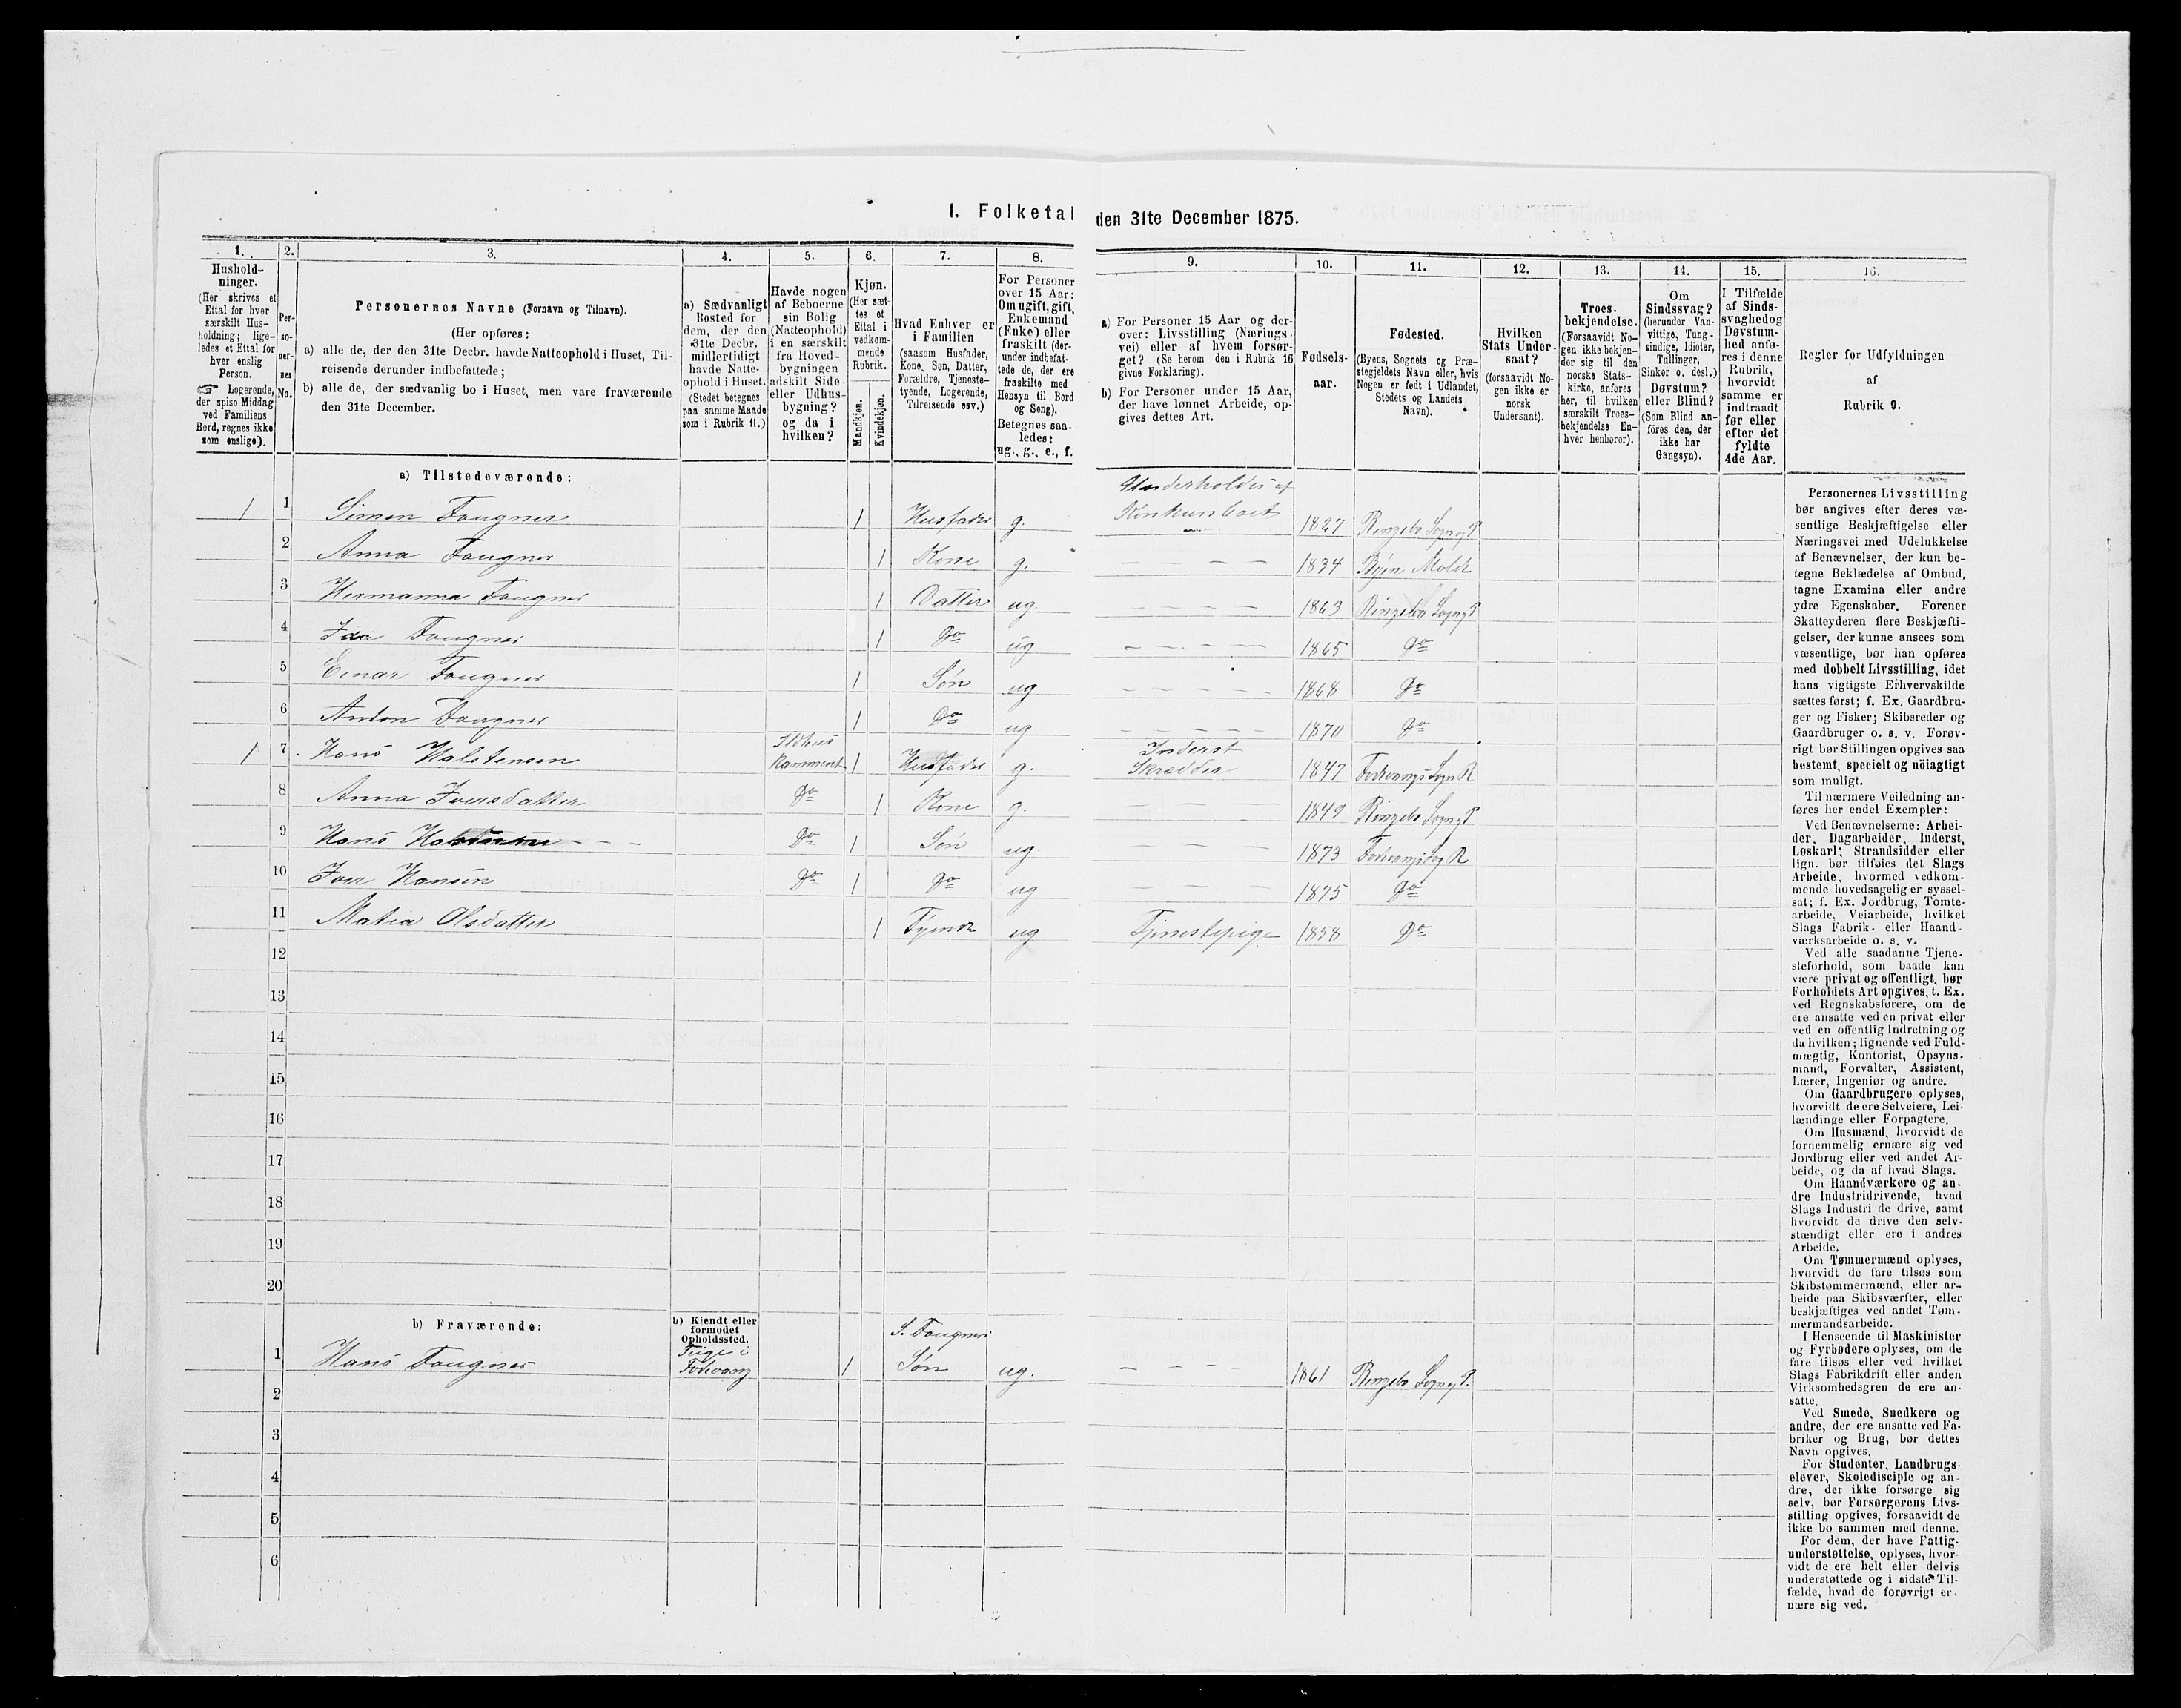 1. Folketal den 31te December 1875.
1.
Hushold-
ninger.
(Her skrives et
Ettal for hver
særskilt Hus-
holdning; lige-
ledes et Ettal for
hver enslig
Person.
☞ Logerende,
der spise Middag
ved Familiens
Bord, regnes ikke
som enslige).
2.
Per-
so-
ner-
nes
No.
3.
Personernes Navne (Fornavn og Tilnavn).
(Her opføres:
a) alle de, der den 31te Decbr. havde Natteophold i Huset, Til-
reisende derunder indbefattede;
b) alle de, der sædvanlig bo i Huset, men vare fraværende
den 31te December.
4.
a) Sædvanligt
Bosted for
dem, der den
31te Decbr.
midlertidigt
havde Natte-
ophold i Huset.
(Stedet betegnes
paa samme Maade
som i Rubrik 11.)
5.
Havde nogen
af Beboerne
sin Bolig
(Natteophold)
i en særskilt
fra Hoved-
bygningen
adskilt Side-
eller Udhus-
bygning?
og da i
hvilken?
6.
Kjøn.
(Her sæt-
tes et
Ettal i
vedkom-
mende
Rubrik.
Mandkjøn.
Kvindekjøn.
7.
Hvad Enhver er
i Familien
(saasom Husfader,
Kone, Søn, Datter,
Forældre, Tjeneste-
tyende, Logerende,
Tilreisende osv.)
8.
For Personer
over 15 Aar:
Om ugift, gift,
Enkemand
(Enke) eller
fraskilt (der-
under indbefat-
tede de, der ere
fraskilte med
Hensyn til Bord
og Seng).
Betegnes saa-
ledes:
ug., g., e., f.
9.
a) For Personer 15 Aar og der-
over: Livsstilling (Nærings-
vei) eller af hvem forsør-
get? (Se herom den i Rubrik 16
givne Forklaring).
b) For Personer under 15 Aar,
der have lønnet Arbeide, op-
gives dettes Art.
10.
Fødsels-
aar.
11.
Fødested.
(Byens, Sognets og Præ-
stegjeldets Navn eller, hvis
Nogen er født i Udlandet,
Stedets og Landets
Navn).
12.
Hvilken
Stats Under-
saat?
(forsaavidt No-
gen ikke er
norsk
Undersaat).
13.
Troes-
bekjendelse.
(Forsaavidt No-
gen ikke bekjen-
der sig til den
norske Stats-
kirke, anføres
her, til hvilken
særskilt Troes-
bekjendelse En-
hver henhører).
14.
Om
Sindssvag?
(herunder Van-
vittige, Tung-
sindige, Idioter,
Tullinger,
Sinker o. desl.)
Døvstum?
eller Blind?
(Som Blind an-
föres den, der
ikke har
Gangsyn).
15.
I Tilfælde
af Sinds-
svaghed og
Døvstum-
hed anfø-
res i denne
Rubrik,
hvorvidt
samme er
indtraadt
før eller
efter det
fyldte
4de Aar.
16.
Regler for Udfyldningen
af
Rubrik 9.
a) Tilstedeværende:
1 1 Simen Fougner 1 Husfader g. Underholdes af Konkursboet 1827 Ringebo Sogn og P
2 Anna Fougner 1 Kone g. — — — — 1834 Byen Molde
3 Hermanna Fougner 1 Datter ug. — — — — 1863 Ringebo Sogn og P
4 Ida Fougner 1 Do ug — — — — 1865 Do
5 Einar Fougner 1 Søn ug — — — — — 1868 Do
6 Anton Fougner 1 Do ug — — — — — 1870 Do
1 7 Hans Halstensen Ildhus Kammeret 1 Husfader g. Inderst Skrædder 1847 Fodvangs Sogn R
8 Anna Iversdatter Do 1 Kone g. — — — 1849 Ringebo Sogn og P
9 Hans - - - Do 1 Søn ug. — — — 1873 Fodvangs Sogn R
10 Iver Hansen Do 1 Do ug — — — 1875 Do
11 Matia Olsdatter 1 Tyende ug Tjenestepige 1858 Do
12
13
14
15
16
17
18
19
20
b) Fraværende:
b) Kjendt eller
formodet
Opholdssted.
1 Hans Fougner Teige i Fodvang 1 S. Fougners Søn ug. — — — — 1861 Ringebo Sogn og P.
2
3
4
5
6
Personernes Livsstilling
bør angives efter deres væ-
sentlige Beskjæftigelse eller
Næringsvei med Udelukkelse
af Benævnelser, der kun be-
tegne Beklædelse af Ombud,
tagne Examina eller andre
ydre Egenskaber. Forener
Skatteyderen flere Beskjæfti-
gelser, der kunne ansees som
væsentlige, bør han opføres
med dobbelt Livsstilling, idet
hans vigtigste Erhvervskilde
sættes først; f. Ex. Gaardbru-
ger og Fisker; Skibsreder og
Gaardbruger o. s. v. Forøv-
rigt bør Stillingen opgives saa
bestemt, specielt og nöiagtigt
som muligt.
Til nærmere Veiledning an-
føres her endel Exempler:
Ved Benævnelserne: Arbei-
der, Dagarbeider, Inderst,
Løskarl, Strandsidder eller
lign. bør tilføies det Slags
Arbeide, hvormed vedkom-
mende hovedsagelig er syssel-
sat; f. Ex. Jordbrug, Tomte-
arbeide, Veiarbeide, hvilket
Slags Fabrik- eller Haand-
værksarbeide o. s. v.
Ved alle saadanne Tjene-
steforhold, som baade kan
være privat og offentligt, bør
Forholdets Art opgives, t. Ex.
ved Regnskabsførere, om de
ere ansatte ved en privat eller
ved en offentlig Indretning og
da hvilken; lignende ved Fuld-
mægtig, Kontorist, Opsyns-
mand, Forvalter, Assistent,
Lærer, Ingeniør og andre.
Om Gaardbrugere oplyses,
hvorvidt de ere Selveiere, Lei-
lændinge eller Forpagtere.
Om Husmænd, hvorvidt de
fornemmelig ernære sig ved
Jordbrug eller ved andet Ar-
beide, og da af hvad Slags.
Om Haandværkere og an-
dre Industridrivende, hvad
Slags Industri de drive, samt
hvorvidt de drive den selv-
stændigt eller ere i andres
Arbeide.
Om Tømmermænd oplyses,
hvorvidt de fare tilsøs som
Skibstømmermænd, eller ar-
beide paa Skibsværfter, eller
beskjæftiges ved andet Tøm-
mermandsarbeide.
I Henseende til Maskinister
og Fyrbødere oplyses, om de
fare tilsøs eller ved hvilket
Slags Fabrikdrift eller anden
Virksomhedsgren de ere an-
satte.
Ved Smede, Snedkere og
andre, der ere ansatte ved Fa-
briker og Brug, bør dettes
Navn opgives.
For Studenter, Landbrugs-
elever, Skoledisciple og an-
dre, der ikke forsørge sig
selv, bør Forsørgerens Livs-
stilling opgives, forsaavidt de
ikke bo sammen med denne.
For dem, der have Fattig-
understøttelse, oplyses, hvor-
vidt de ere helt eller delvis
understøttede og i sidste Til-
fælde, hvad de forøvrigt er-
nære sig ved.